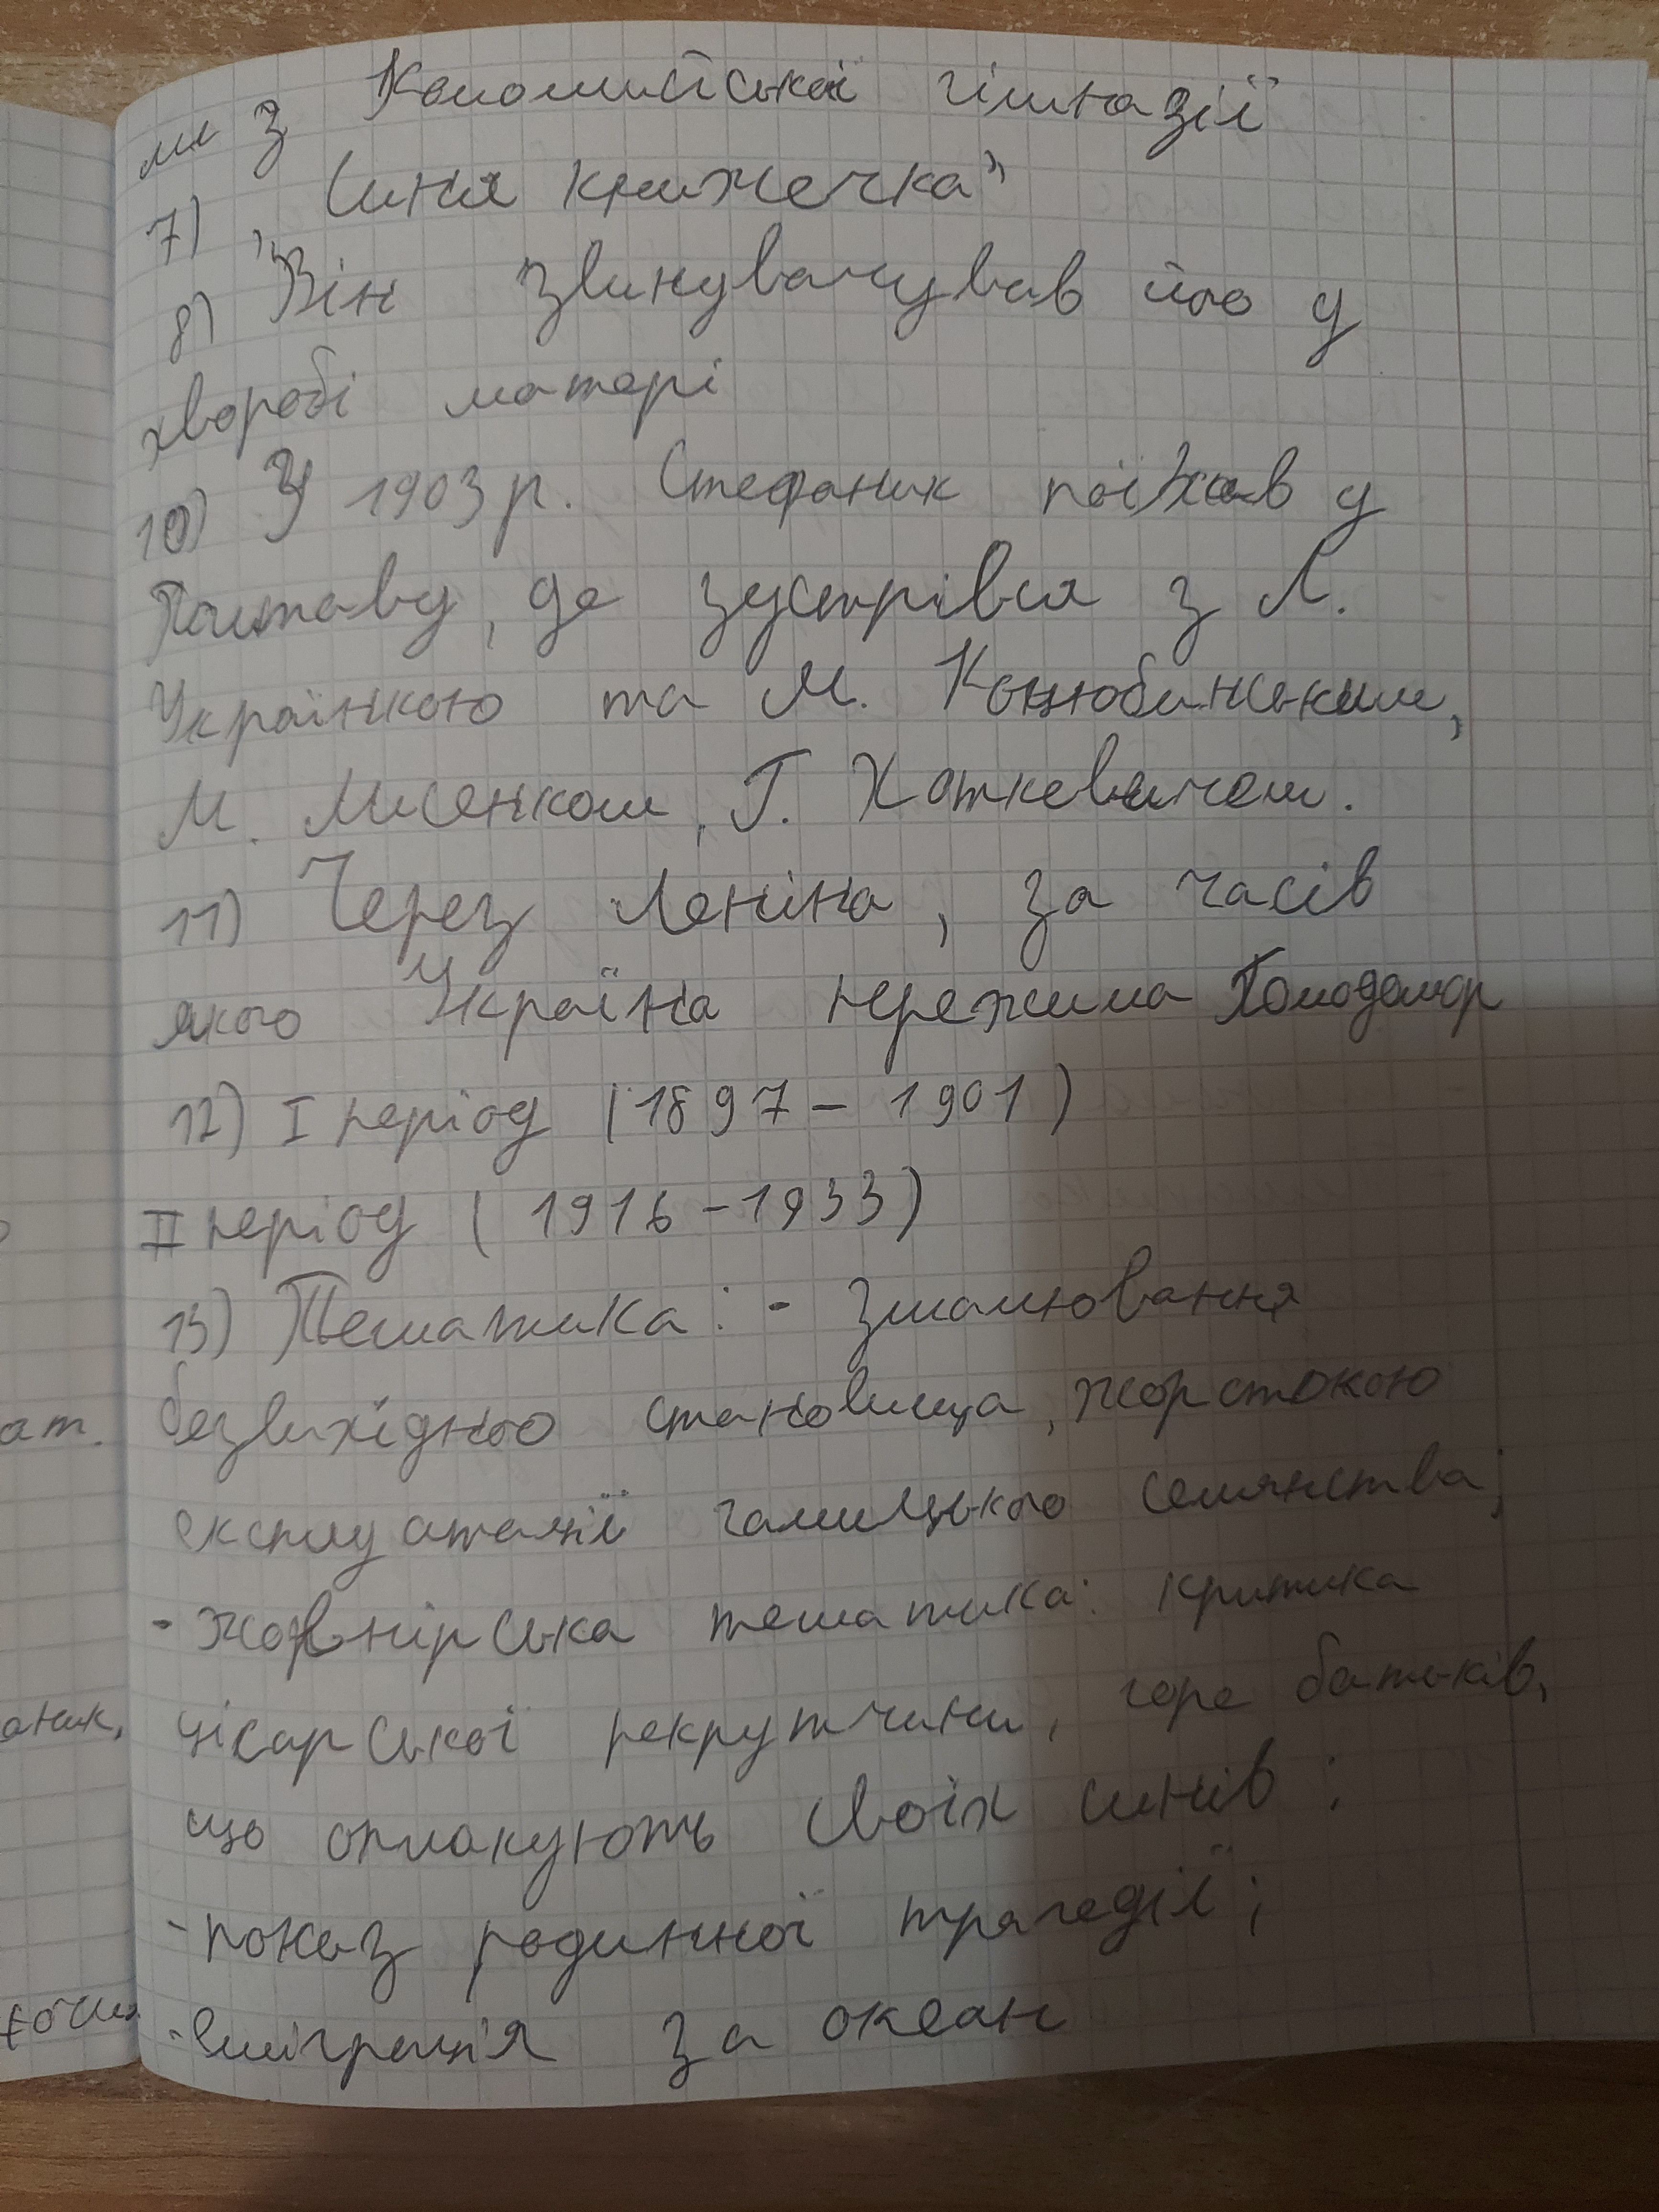 ми з Коломийської гімназії
7) „Синя книжечка”
8) Він звинувачував його у
хворобі матері
10) У 1903 р. Стефаник поїхав у
Полтаву, де зустрівся з Л.
Українкою та М. Коцюбинським,
М. Лисенком, Г. Хоткевичем.
11) Через Леніна, за часів
якого Україна пережила Голодомор
12) І період (1897 – 1901)
ІІ період (1916 – 1933)
13) Тематика: - змалювання
безвихідного становища, жорстокою
експлуатації галицького селянства;
- жовнірська тематика: критика
цісарської рекрутчини, горе батьків,
що оплакують своїх синів;
- показ родинної трагедії;
- еміграція за океан
ат.
аник,